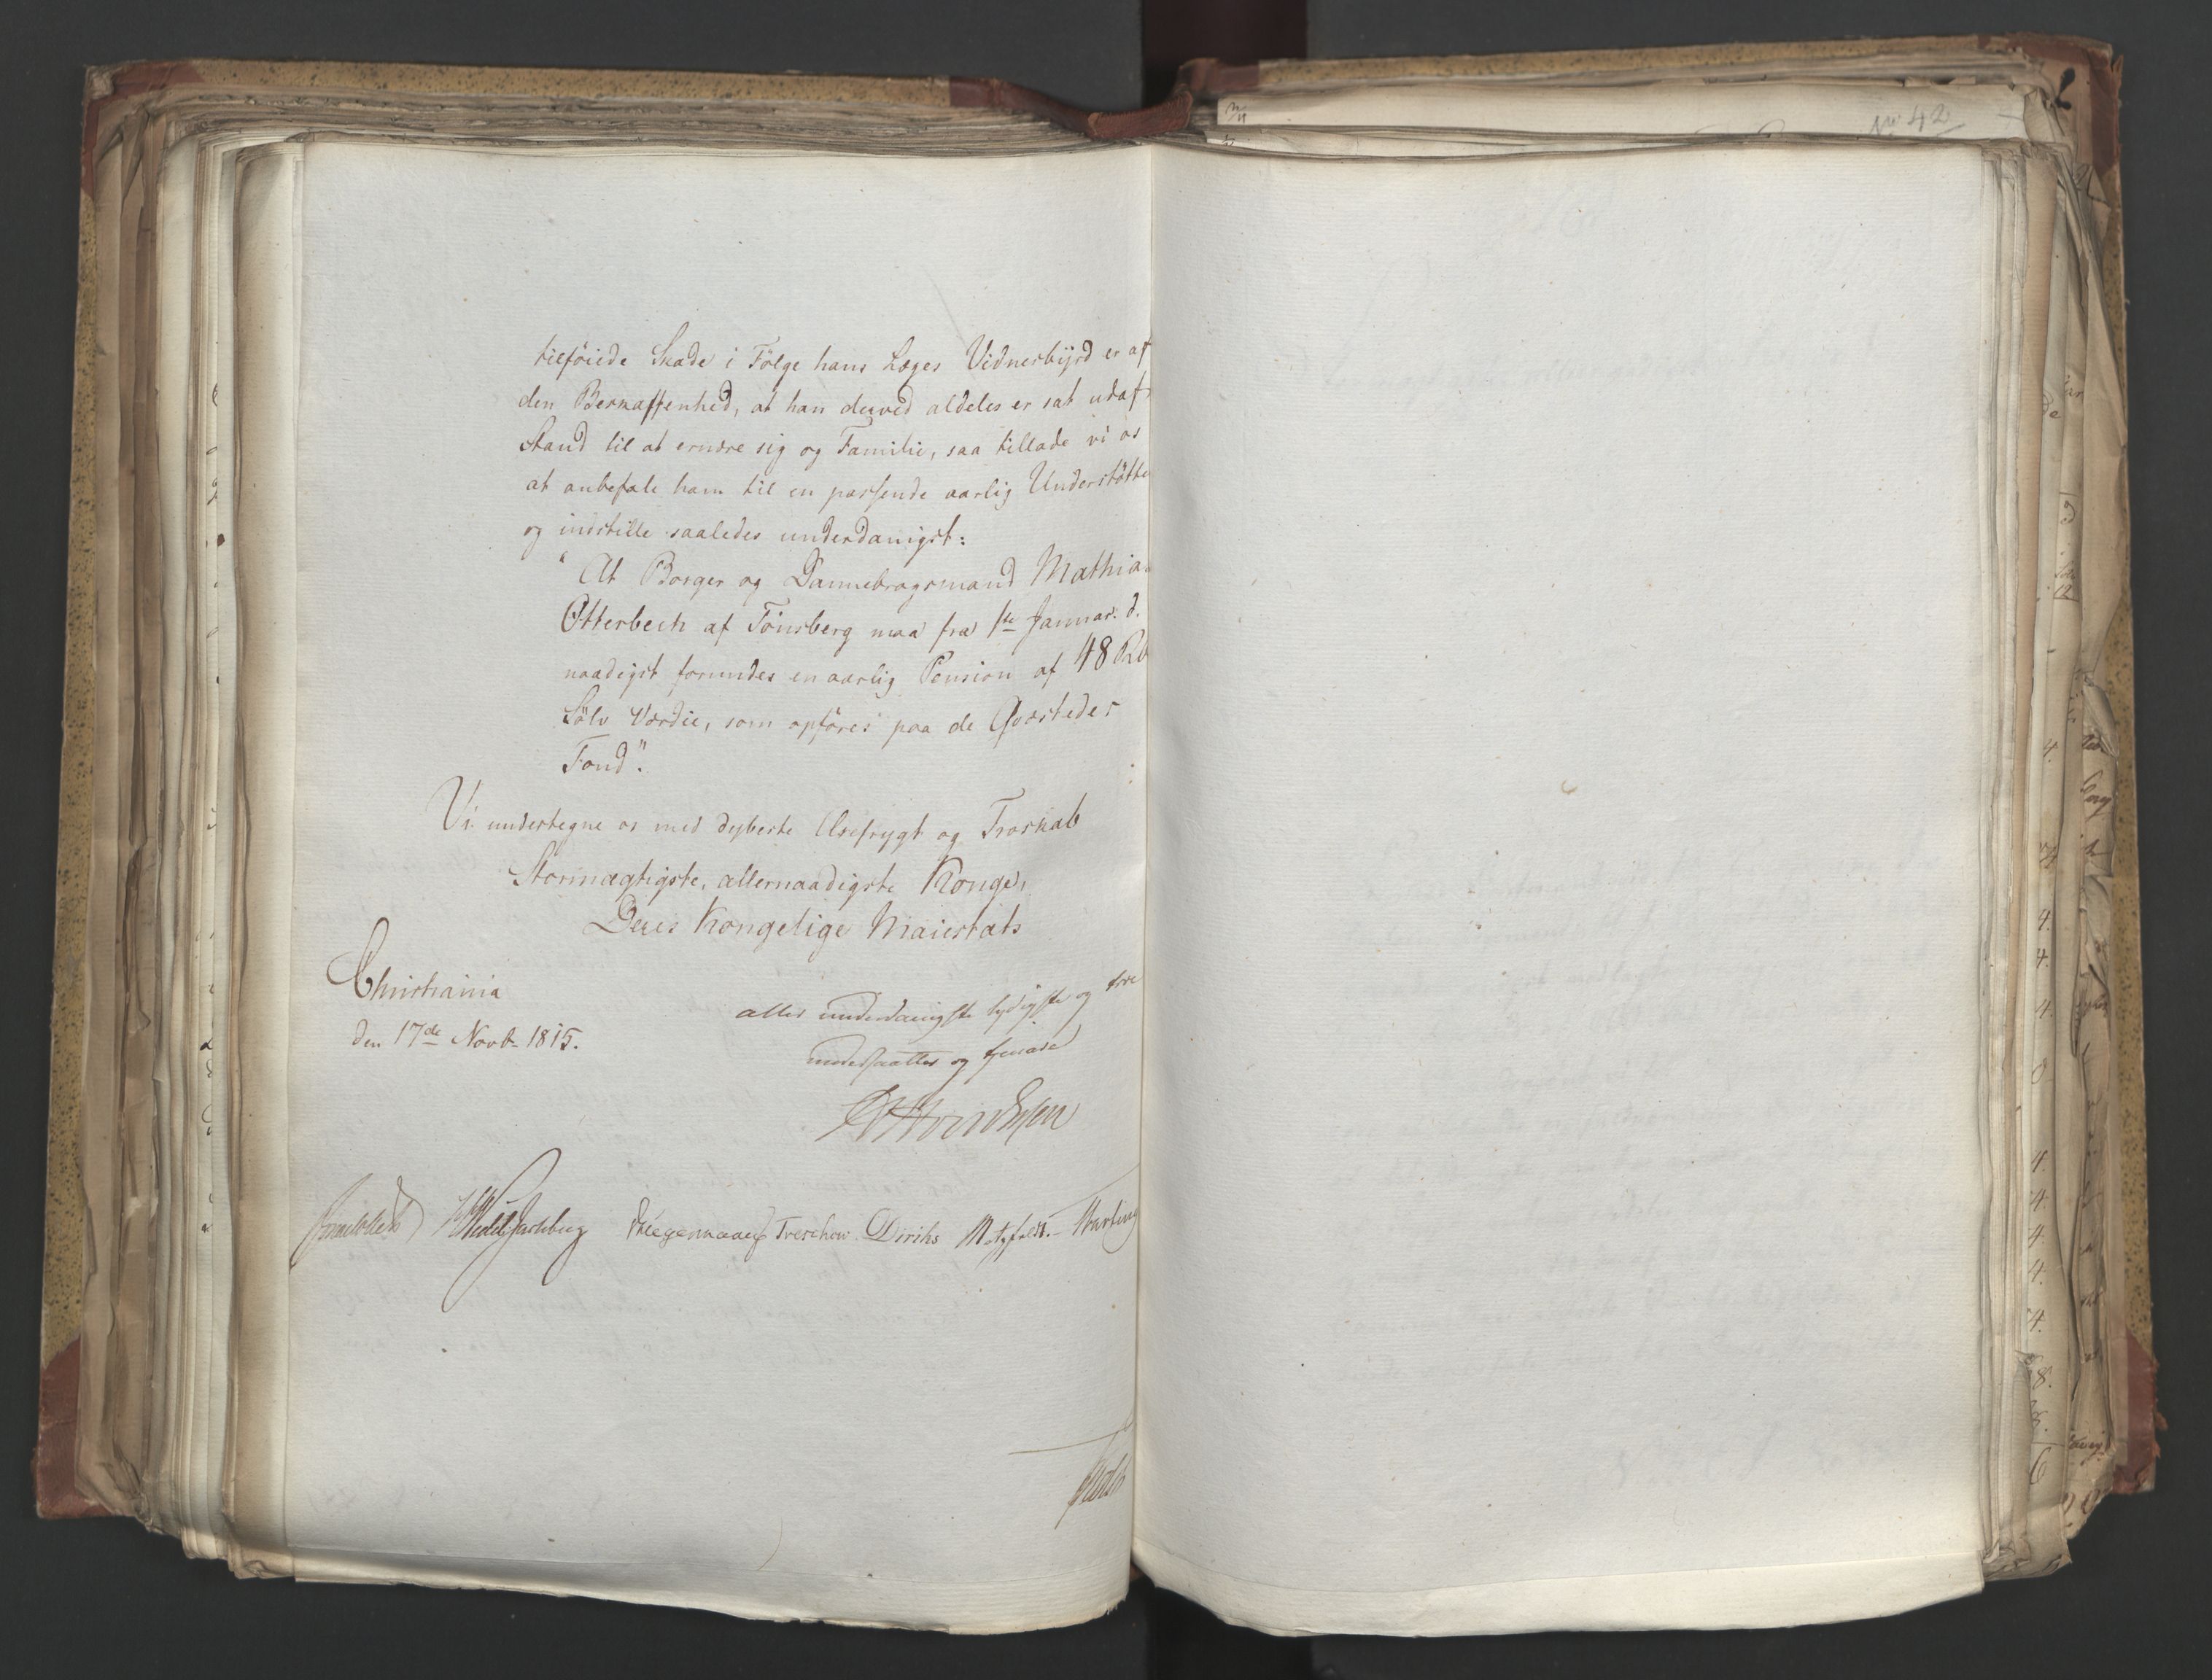 No 42
tilföiede Skade i Fölge hans Læges Vidnesbyrd er af
den Beskaffenhed, at han derved aldeles er sat udaf
Stand til at ernære sig og Familie, saa tillade vi os
at anbefale ham til en passende aarlig Understötte
og indstille saaledes underdanigst:
"At Borger og Dannebrogsmand Mathias
Otterbech af Tönsberg maa fra 1ste Januar. d.
naadigst forundes en aarlig Pension af 48 Rb
Sölv Værdie, som opföres paa de Qvæstedes
Fond".
Vi undertegne os med dybeste Ærefrygt og Troskab
Stormægtigste, allernaadigste Konge,
Deres Kongelige Maiestæts
Christiania
den 17de Novbr 1815.
aller underdanigste lydigste og troe
undersaatter og tjenere
Wedel Jarlsberg Treschow Diriks Motzfeldt.